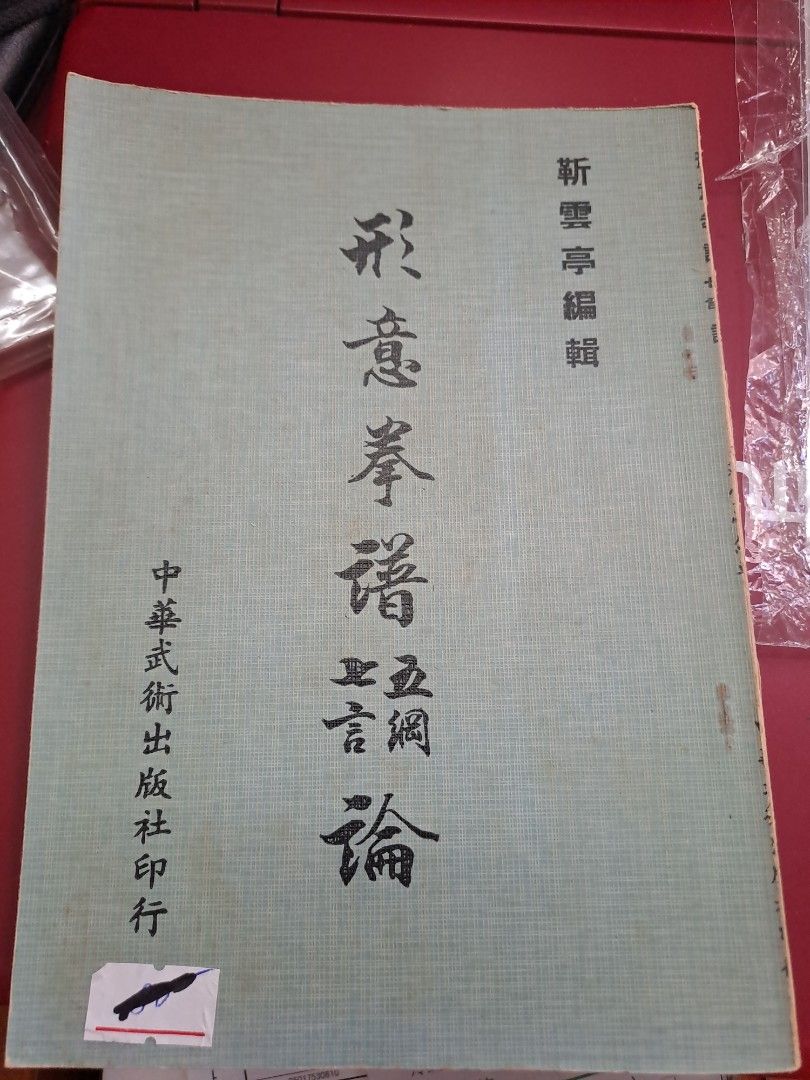 靳雲亭編輯
形意拳譜五綱七言論
中華武術出版社印行
05017530810